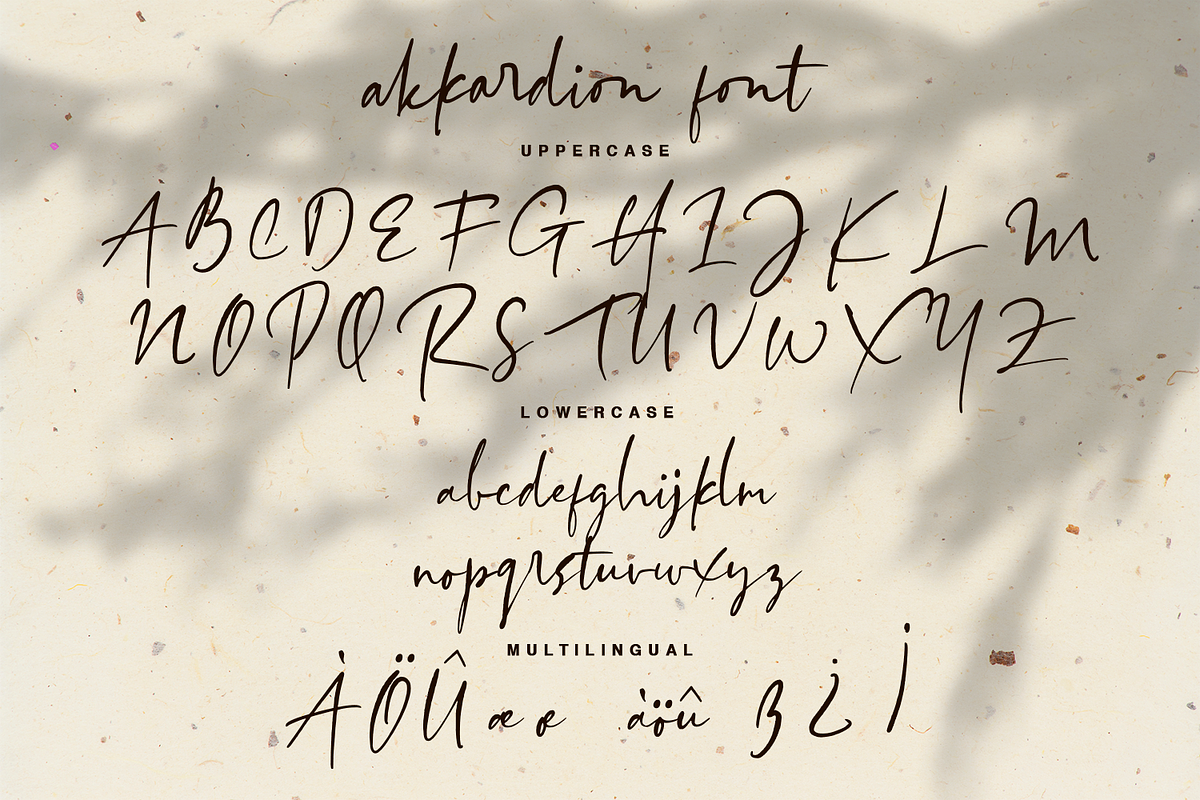 akkardion font
UPPERCASE
A B C D E F G H I J K L M
N O P Q R S T U V W X Y Z
LOWERCASE
abcdefghijklm
nopqrstuvwxyz
MULTILINGUAL
À Ö Û æ œ à ö û ß ¿ ¡